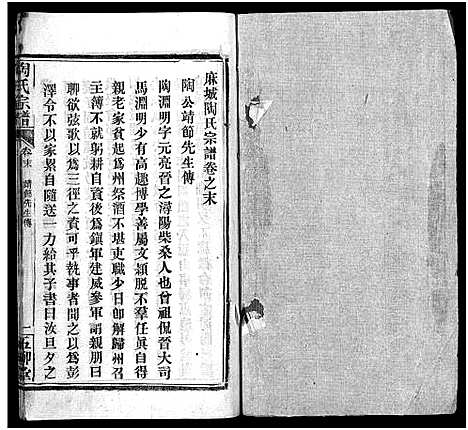 麻城陶氏宗譜卷之末
陶公靖節先生傳
陶淵明字元亮晉之潯陽柴桑人也曾祖侃晉大司
馬淵明少有高趣博學善屬文頴脫不羣任眞自得
親老家貧起爲州祭酒不堪吏職少日卽解歸州召
主簿不就躬耕自資後爲鎭軍建威參軍謂親朋曰
聊欲弦歌以爲三徑之資可乎執事者聞之以爲彭
澤令不以家累自隨送一力給其子書曰汝旦夕之
陶氏宗譜
卷末
靖節先生傳
一
五柳堂